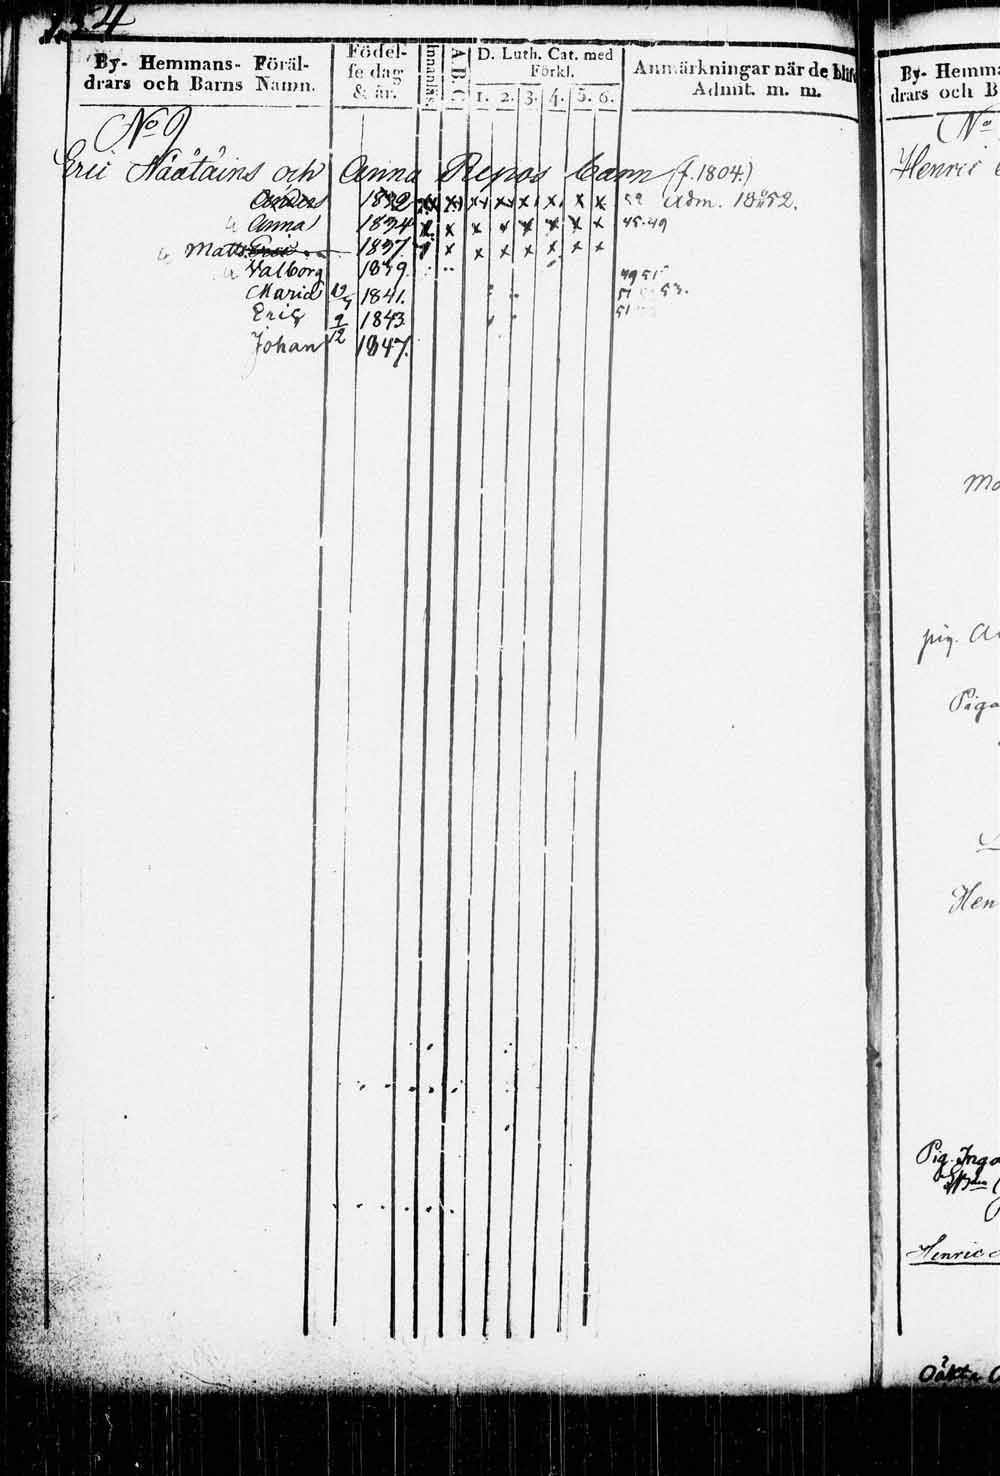 By- Hemmans- Föräl-
drars och Barns Namn.
Födel-
se dag
& år.
Innanläs.
A B C
D. Luth. Cat. med
Förkl.
1. 2. 3. 4. 5. 6.
Anmärkningar när de blifv
Admit. m. m.
No 9
Eric Näätäins och Anna Repos Barn (f. 1804.)
Anders 1832 x x x x x x x x 52 Adm. 1852.
Anna 1834 x x x x x x x x 45.49
Matts 1837 x x x x x x x
Valborg 1839. 49 51
Maria 1841. 51 53.
Eric 9/12 1843
Johan 1847.
By- Hemma
drars och B
No
Henric
Ma
pig. A
Piga
Hen
Pig. Inga
Henric